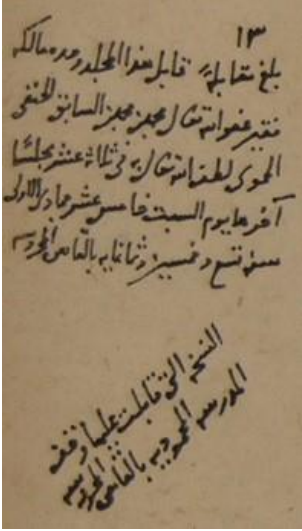 ١٣
بلغ مقابلة قابل هذا المجلد وحده مالكه
فقير عفو الله تعالى محمد بن محمد بن السابق الحنفي
الحموي لطف الله تعالى به في ثلاثة عشر مجلسا
آخرها يوم السبت خامس عشر جمادى الاولى
سنة تسع وخمسين وثمانمايه بالقاهرة المحروسه
النسخة التي قابلت عليها وقف
المدرسه المحموديه بالقاهره المحروسه